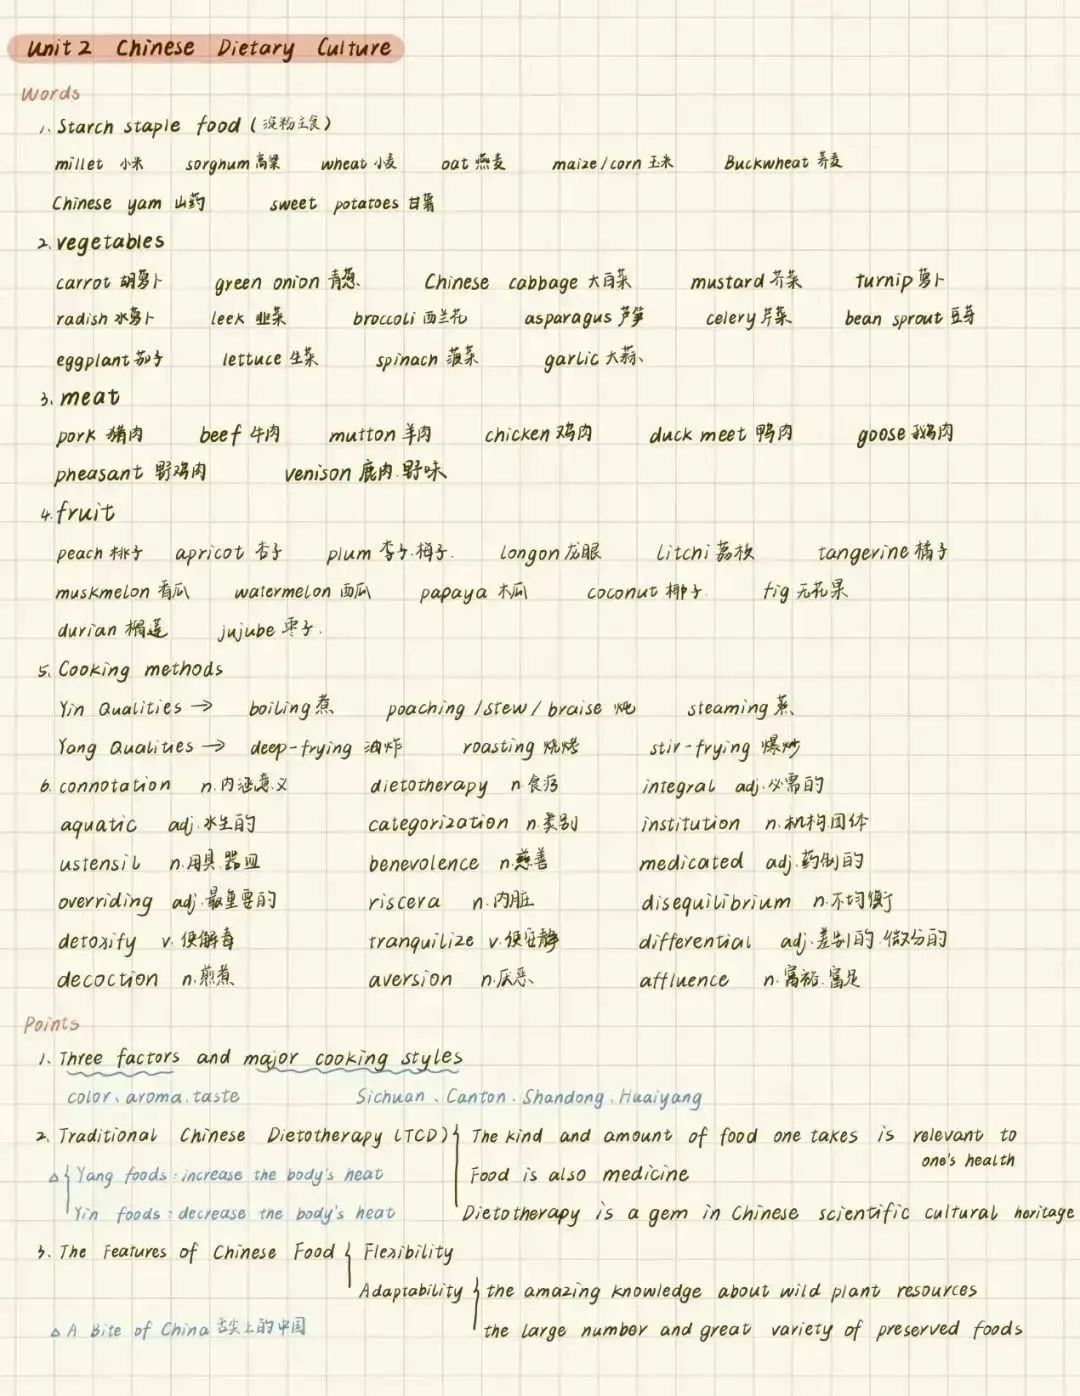 Unit 2 Chinese Dietary Culture
Words
1. Starch staple food (淀粉主食)
millet 小米 sorghum 高粱 wheat 小麦 oat 燕麦 maize/corn 玉米 Buckwheat 荞麦
Chinese yam 山药 sweet potatoes 甘薯
2. vegetables
carrot 胡萝卜 green onion 青葱 Chinese cabbage 大白菜 mustard 芥菜 turnip 萝卜
radish 水萝卜 leek 韭菜 broccoli 西兰花 asparagus 芦笋 celery 芹菜 bean sprout 豆芽
eggplant 茄子 lettuce 生菜 spinach 菠菜 garlic 大蒜
3. meat
pork 猪肉 beef 牛肉 mutton 羊肉 chicken 鸡肉 duck meet 鸭肉 goose 鹅肉
pheasant 野鸡肉 venison 鹿肉.野味
4. fruit
peach 桃子 apricot 杏子 plum 李子.梅子. longon 龙眼 litchi 荔枝 tangerine 橘子
muskmelon 香瓜 watermelon 西瓜 papaya 木瓜 coconut 椰子. fig 无花果
durian 榴莲 jujube 枣子.
5. Cooking methods
Yin Qualities → boiling 煮 poaching /stew/ braise 炖 steaming 蒸
Yang Qualities → deep-frying 油炸 roasting 烧烤 stir-frying 爆炒
6. connotation n.内涵意义 dietotherapy n.食疗 integral adj.必需的
aquatic adj.水生的 categorization n.类别 institution n.机构团体
ustensil n.用具.器皿 benevolence n.慈善 medicated adj.药制的
overriding adj.最重要的 riscera n.内脏 disequilibrium n.不均衡
detoxify v.使解毒 tranquilize v.使安静 differential adj.差别的.微分的
decoction n.煎煮 aversion n.厌恶 affluence n.富裕.富足
Points
1. Three factors and major cooking styles
color、aroma.taste Sichuan、Canton.Shandong.Huaiyang
2. Traditional Chinese Dietotherapy (TCD) { The kind and amount of food one takes is relevant to
one's health
△ { Yang foods: increase the body's heat Food is also medicine
Yin foods: decrease the body's heat Dietotherapy is a gem in Chinese scientific cultural heritage
3. The Features of Chinese Food { Flexibility
Adaptability { the amazing knowledge about wild plant resources
△ A Bite of China 舌尖上的中国 the large number and great variety of preserved foods